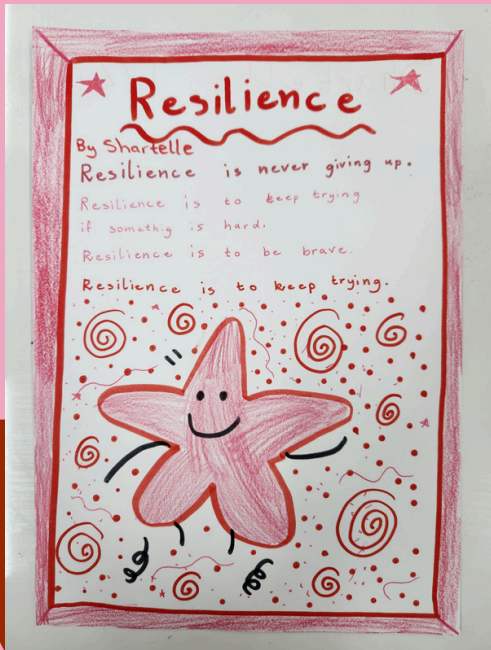 Resilience
By Shartelle
Resilience is never giving up.
Resilience is to keep trying
if somethig is hard.
Resilience is to be brave.
Resilience is to keep trying.